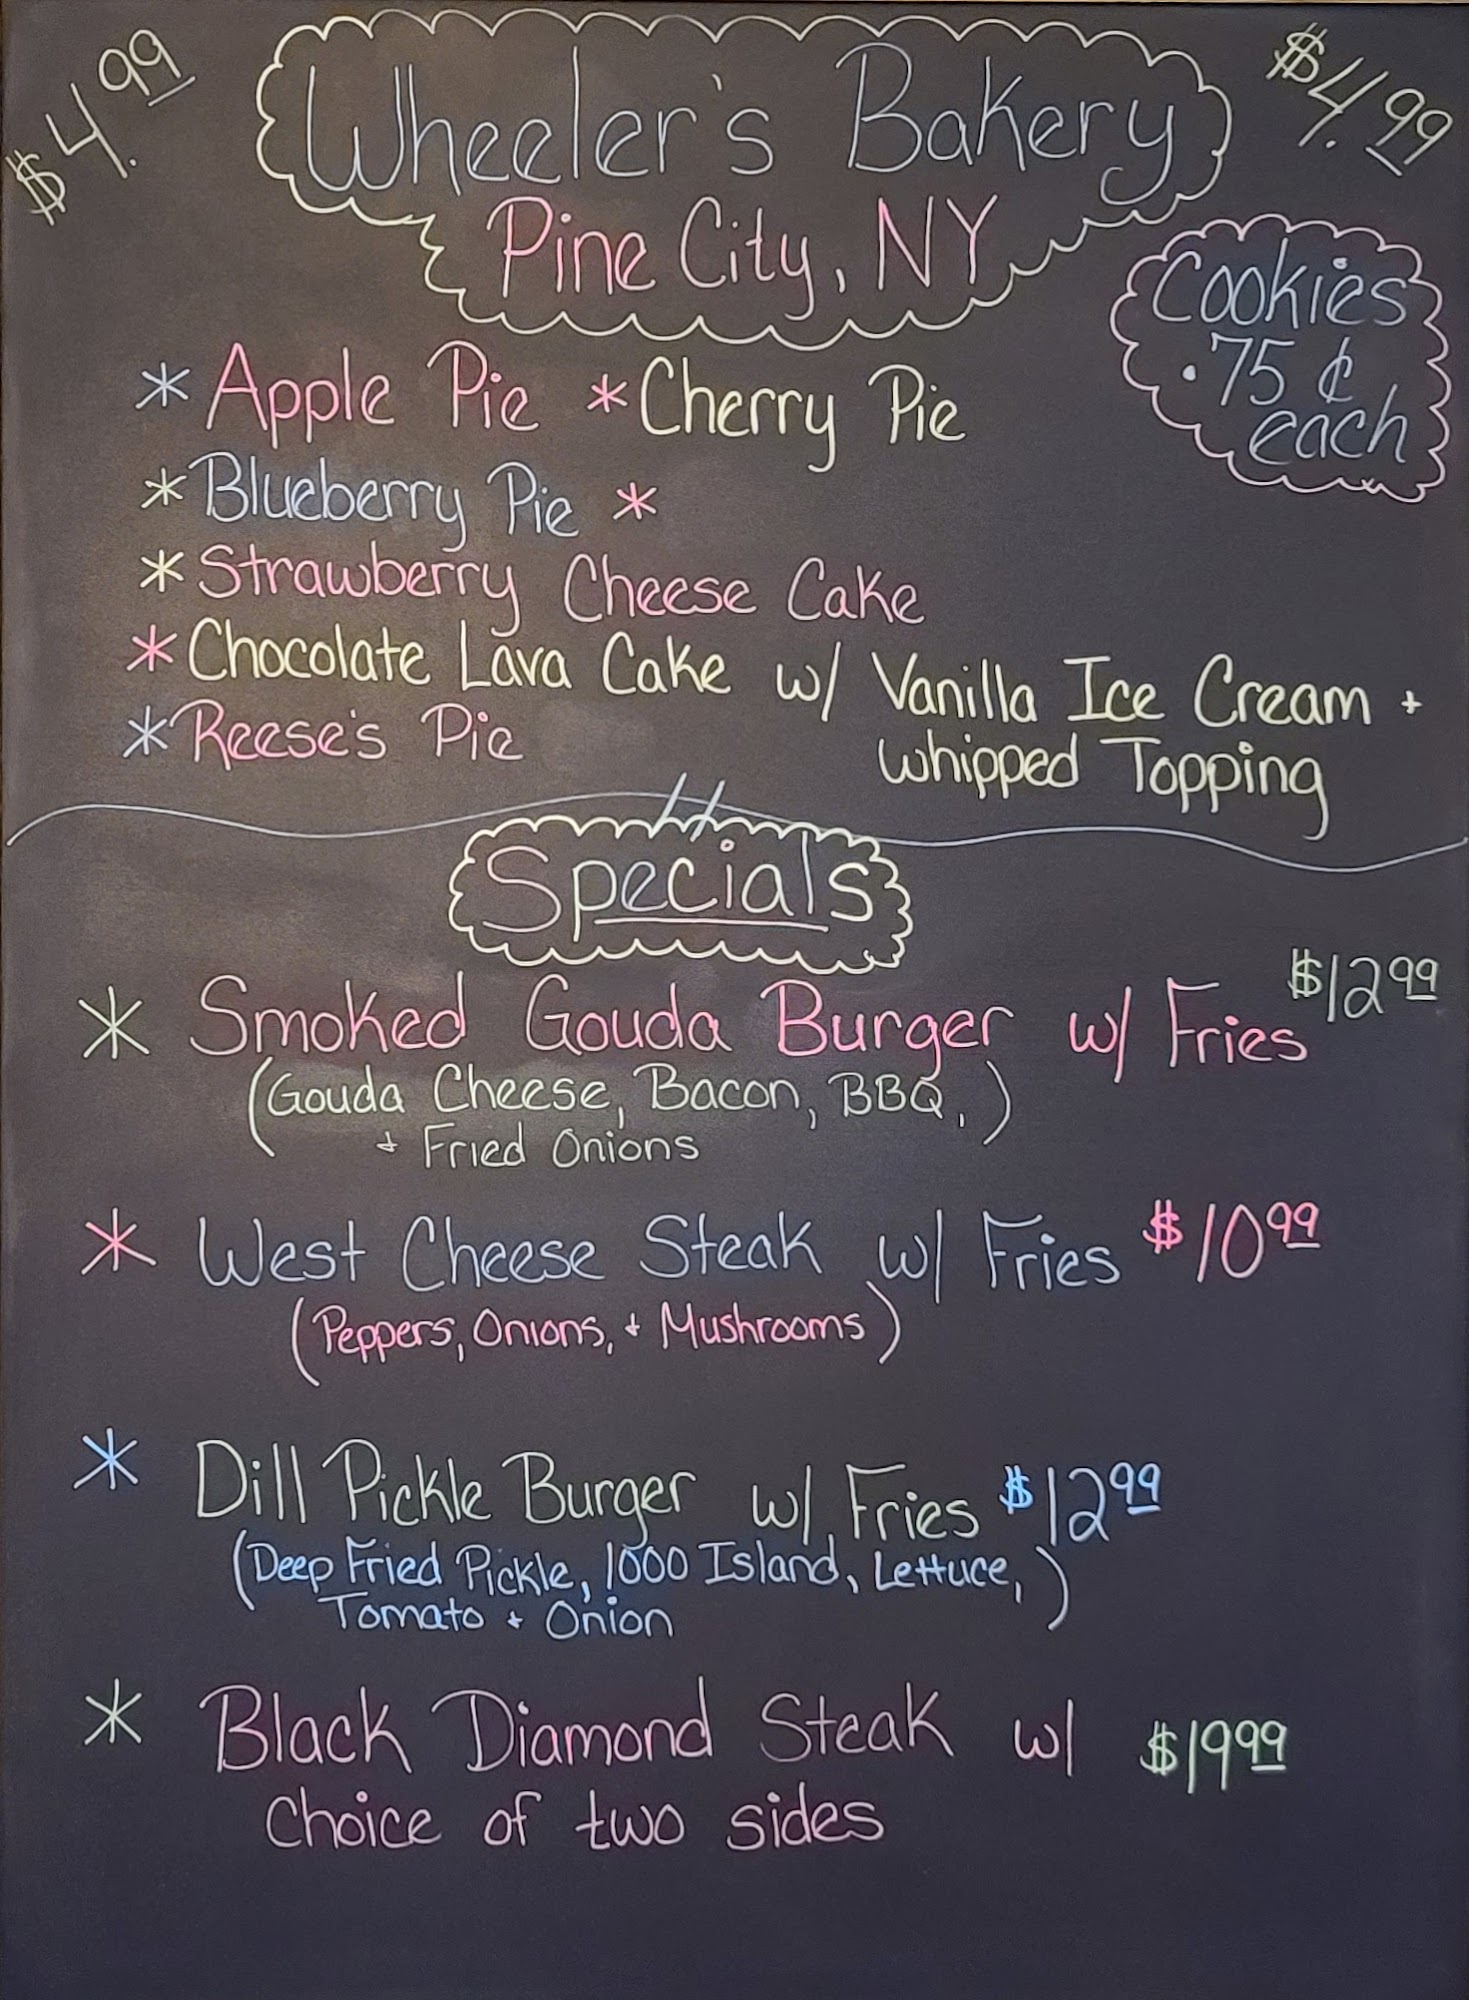 $4.99
Wheeler's Bakery
$4.99
Pine City, NY
Cookies
.75 ¢
each
* Apple Pie * Cherry Pie
* Blueberry Pie *
* Strawberry Cheese Cake
* Chocolate Lava Cake w/ Vanilla Ice Cream +
whipped Topping
* Reese's Pie
Specials
* Smoked Gouda Burger w/ Fries $12.99
(Gouda Cheese, Bacon, BBQ,)
+ Fried Onions
* West Cheese Steak w/ Fries $10.99
(Peppers, Onions, + Mushrooms)
* Dill Pickle Burger w/ Fries $12.99
(Deep Fried Pickle, 1000 Island, Lettuce,)
Tomato + Onion
* Black Diamond Steak w/ $19.99
Choice of two sides